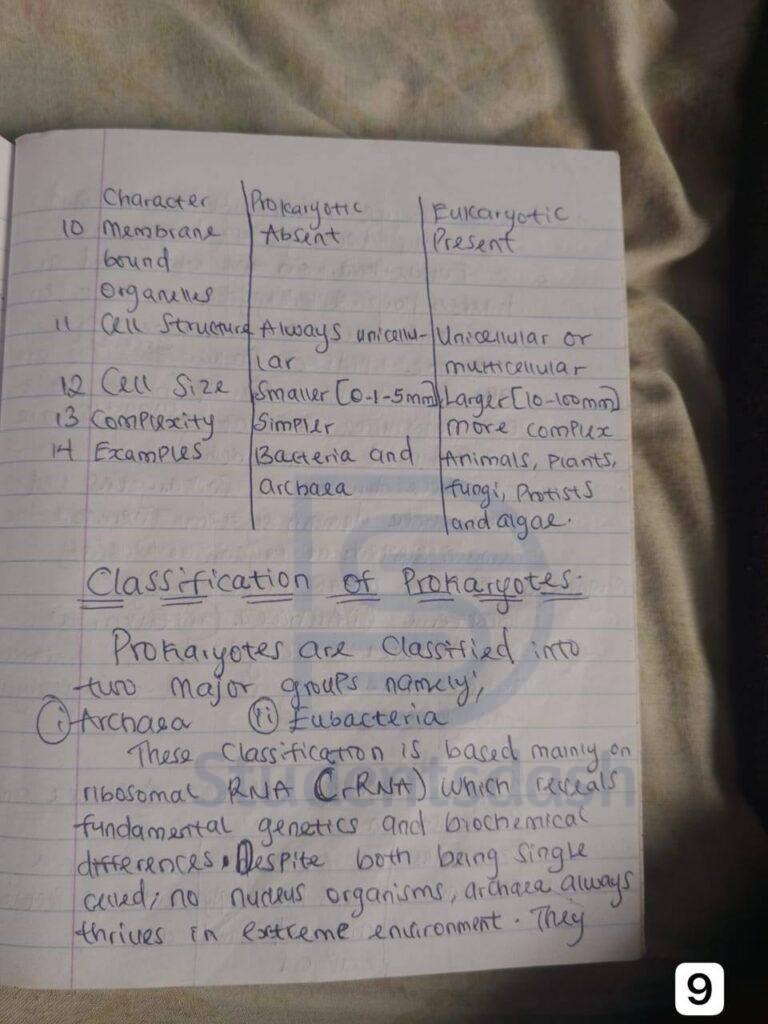 Character Prokaryotic Eukaryotic
10 Membrane Absent Present
bound
organelles
11 Cell Structure Always unicellu- Unicellular or
lar multicellular
12 Cell Size Smaller [0-1-5mm] Larger [10-100mm]
13 Complexity Simpler more complex
14 Examples Bacteria and Animals, Plants,
archaea fungi, Protists
and algae.
Classification of Prokaryotes:
Prokaryotes are Classified into
two major groups namely;
(i) Archaea (ii) Eubacteria
These Classification is based mainly on
ribosomal RNA (rRNA) which reveals
fundamental genetics and biochemical
differences. Despite both being single
celled; no nucleus organisms, archaea always
thrives in extreme environment. They
Studentsdash
9